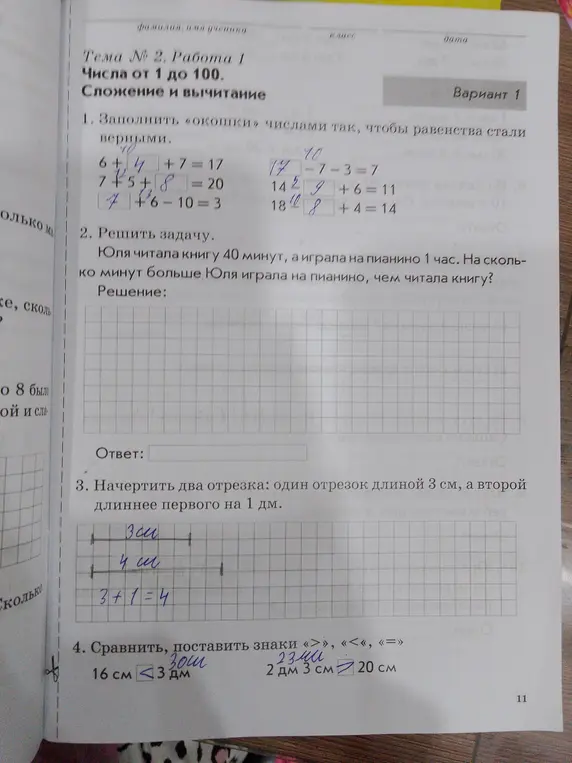 фамилия, имя ученика
класс
дата
Тема № 2. Работа 1
Числа от 1 до 100.
Сложение и вычитание
Вариант 1
1. Заполнить «окошки» числами так, чтобы равенства стали
верными.
10
6 + 4 + 7 = 17
7 + 5 + 8 = 20
7 + 6 – 10 = 3
10
17 – 7 – 3 = 7
14 – 9 + 6 = 11
18 8 + 4 = 14
2. Решить задачу.
Юля читала книгу 40 минут, а играла на пианино 1 час. На сколь-
ко минут больше Юля играла на пианино, чем читала книгу?
Решение:
Ответ:
3. Начертить два отрезка: один отрезок длиной 3 см, а второй
длиннее первого на 1 дм.
3 см
4 см
3 + 1 = 4
4. Сравнить, поставить знаки «>», «<«, «=»
30см
16 см < 3 дм
2 дм 3 см > 20 см
11
о 8 был